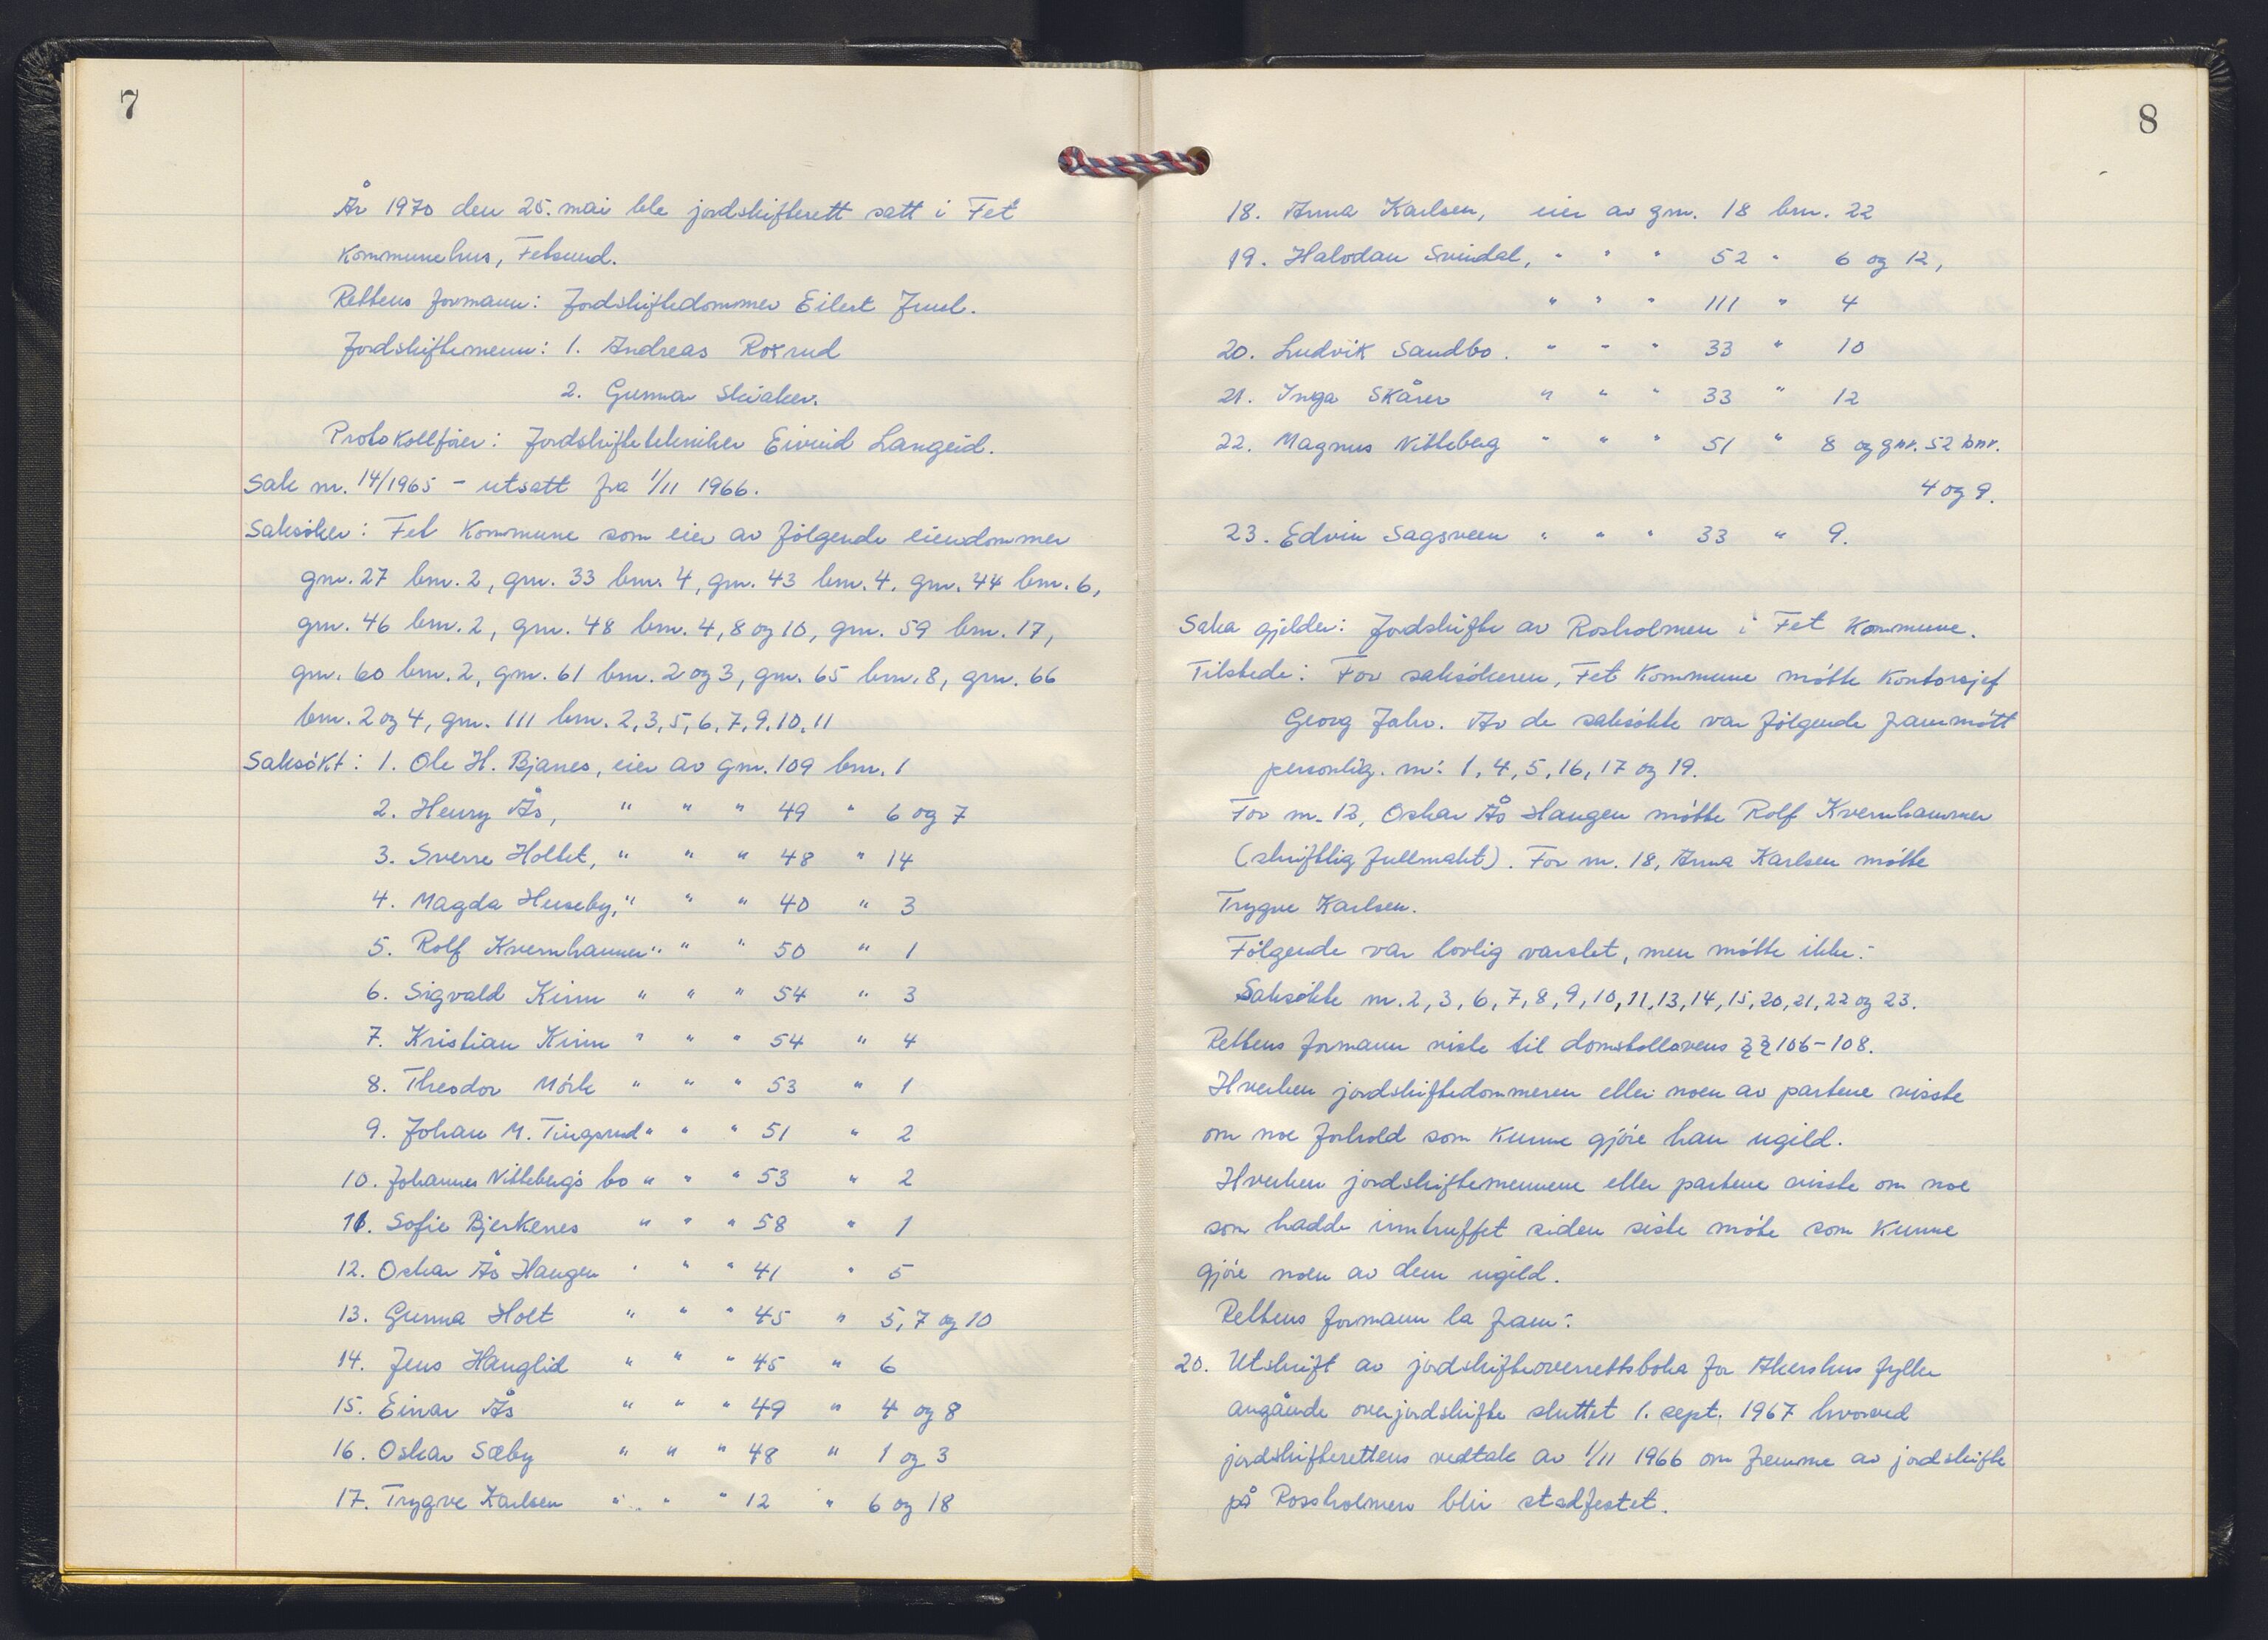 7
År 1970 den 25. mai ble jordskifterett satt i Fet
Kommunehus, Fetsund.
Rettens formann: Jordskiftedommer Eilert Juul.
Jordskiftemenn: 1. Andreas Roxrud
2. Gunnar Skiaker.
Protokollfører: Jordskiftetekniker Eivind Langeid.
Sak nr. 14/1965 - utsatt fra 1/11 1966.
Saksøker: Fet Kommune som eier av følgende eiendommer
gnr. 27 bnr. 2, gnr. 33 bnr. 4, gnr. 43 bnr. 4, gnr. 44 bnr. 6,
gnr. 46 bnr. 2, gnr. 48 bnr. 4, 8 og 10, gnr. 59 bnr. 17,
gnr. 60 bnr. 2, gnr. 61 bnr. 2 og 3, gnr. 65 bnr. 8, gnr. 66
bnr. 2 og 4, gnr. 111 bnr. 2, 3, 5, 6, 7, 9, 10, 11
Saksøkt: 1. Ole H. Bjanes, eier av gnr. 109 bnr. 1
2. Henry Ås, " " " 49 " 6 og 7
3. Sverre Holtet, " " " 48 " 14
4. Magda Huseby, " " " 40 " 3
5. Rolf Kvernhammer " " " 50 " 1
6. Sigvald Kinn " " " 54 " 3
7. Kristian Kinn " " " 54 " 4
8. Theodor Mörk " " " 53 " 1
9. Johan M. Tingsrud " " " 51 " 2
10. Johannes Nitteberg's bo " " " 53 " 2
11. Sofie Bjerkenes " " " 58 " 1
12. Oskar Ås Haugen " " " 41 " 5
13. Gunnar Holt " " " 45 " 5, 7 og 10
14. Jens Hauglid " " " 45 " 6
15. Einar Ås " " " 49 " 4 og 8
16. Oskar Sæby " " " 48 " 1 og 3
17. Trygve Karlsen " " " 12 " 6 og 18
8
18. Anna Karlsen, eier av gnr. 18 bnr. 22
19. Halvdan Svindal, " " " 52 " 6 og 12,
" " " 111 " 4
20. Ludvik Sandbo. " " " 33 " 10
21. Inga Skårer " " " 33 " 12
22. Magnus Nitteberg " " " 51 " 8 og gnr. 52 bnr.
4 og 9.
23. Edvin Sagsveen " " " 33 " 9.
Saka gjelder: Jordskifte av Rosholmen i Fet Kommune.
Tilstede: For saksøkeren, Fet Kommune møtte Kontorsjef
Georg Jahr. Av de saksøkte var følgende frammøtt
personlig. nr: 1, 4, 5, 16, 17 og 19.
For nr. 12, Oskar Ås Haugen møtte Rolf Kvernhammer
(skriftlig fullmakt). For nr. 18, Anna Karlsen møtte
Trygve Karlsen.
Følgende var lovlig varslet, men møtte ikke:
Saksøkte nr. 2, 3, 6, 7, 8, 9, 10, 11, 13, 14, 15, 20, 21, 22 og 23.
Rettens formann viste til domstollovens §§ 106-108.
Hverken jordskiftedommeren eller noen av partene visste
om noe forhold som kunne gjøre han ugild.
Hverken jordskiftemennene eller partene visste om noe
som hadde inntruffet siden siste møte som kunne
gjøre noen av dem ugild.
Rettens formann la fram:
20. Utskrift av jordskifteoverrettsboka for Akershus fylke
angående overjordskifte sluttet 1. sept. 1967 hvorved
jordskifterettens vedtak av 1/11 1966 om fremme av jordskifte
på Rossholmen blir stadfestet.